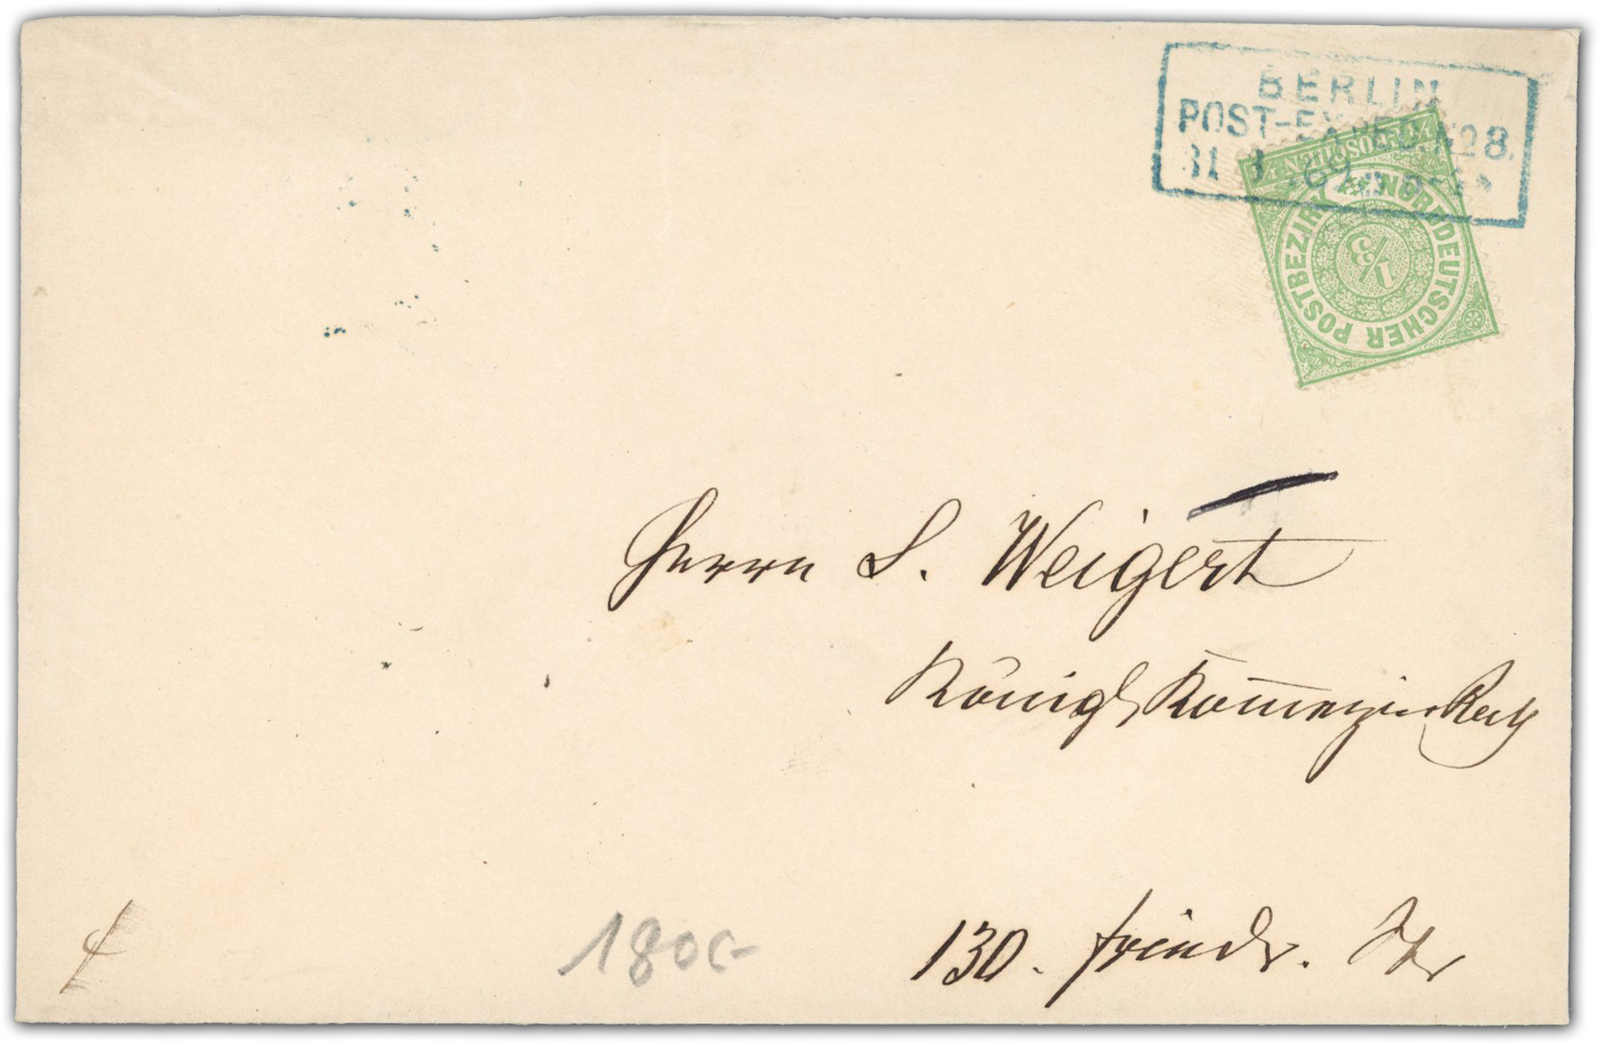 BERLIN
POST-EXPED. No 28.
31 69
NORDDEUTSCHER POSTBEZIRK
1/3
Herrn S. Weigert
Königl. Kom̄erzien Rath
130. Friedr. Str
180.-